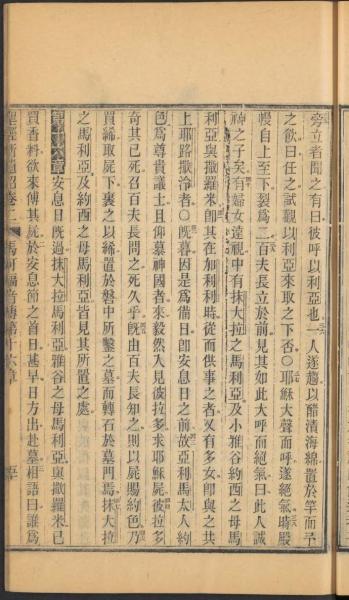 旁立者聞之有曰彼呼以利亞也一人遂趨以醋漬海綿置於竿而予
之飲曰任之試觀以利亞來取之下否〇耶穌大聲而呼遂絕氣時殿
幔自上至下裂爲二百夫長立於前見其如此大呼而絕氣曰此人誠
神之子矣有婦女遠視中有抹大拉之馬利亞及小雅谷約西之母馬
利亞與撒羅米卽其在加利利時從而供事之者又有多女卽與之共
上耶路撒冷者〇旣暮因是爲備日卽安息日之前故亞利馬太人約
色爲尊貴議士且仰慕神國者來毅然入見彼拉多求耶穌屍彼拉多
奇其已死召百夫長問之死久乎旣由百夫長知之則以屍賜約色乃
買絺取屍下裹之以絺置於磐中所鑿之墓而轉石於墓門焉抹大拉
之馬利亞及約西之母馬利亞皆見其所置之處
第十六章安息日旣過抹大拉馬利亞雅谷之母馬利亞與撒羅米已
買香料欲來傅其屍於安息節之首日甚早日方出赴墓相語曰誰爲
聖經新遺詔卷二 馬可福音傳第十六章